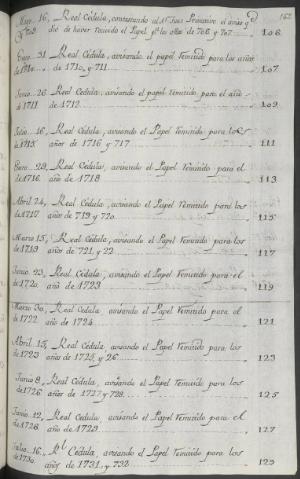 Mayo. 16, Real Cedula, contextando al Sr. Juez Privativo el aviso qe.
dio de haver recivido el Papel pa. los años de 706 y 707 106
162
Enero. 31. Real Cedula, avisando el papel remitido para los años
de 1710. de 1710, y 711. 107
Junio. 26 Real Cedula, avisando el papel remitido para el año
de 1711. de 1712. 109
Julio. 16, Real Cedula, avisando el Papel remitido para los
de 1715. años de 1716 y 717 111
Enero. 29, Real Cedula, avisando el Papel Remitido para el
de 1716. año de 1718 113
Abril. 24, Real Cedula, avisando el Papel Remitido para los
de 1717 años de 719 y 720. 115
Marzo. 15, Real Cedula, avisando el Papel Remitido para los
de 1719 años de 721, y 22 117
Junio. 23, Real Cedula, avisando el Papel Remitido para el
de 1720. año de 1723 119
Marzo. 30, Real Cedula, avisando el Papel Remitido para el
de 1722. año de 1724 121
Abril. 15, Real Cedula, avisando el Papel Remitido para los
de 1723 años de 1725, y 26 123
Junio. 8, Real Cedula, avisando el Papel Remitido para los
de 1726 años de 1727 y 728. 125
Junio. 12, Real Cedula, avisando el Papel Remitido para el
de 1728. año de 1729 127
Julio. 16, Rl. Cedula, avisando el Papel Remitido para los
de 1730. años de 1731, y 732 129